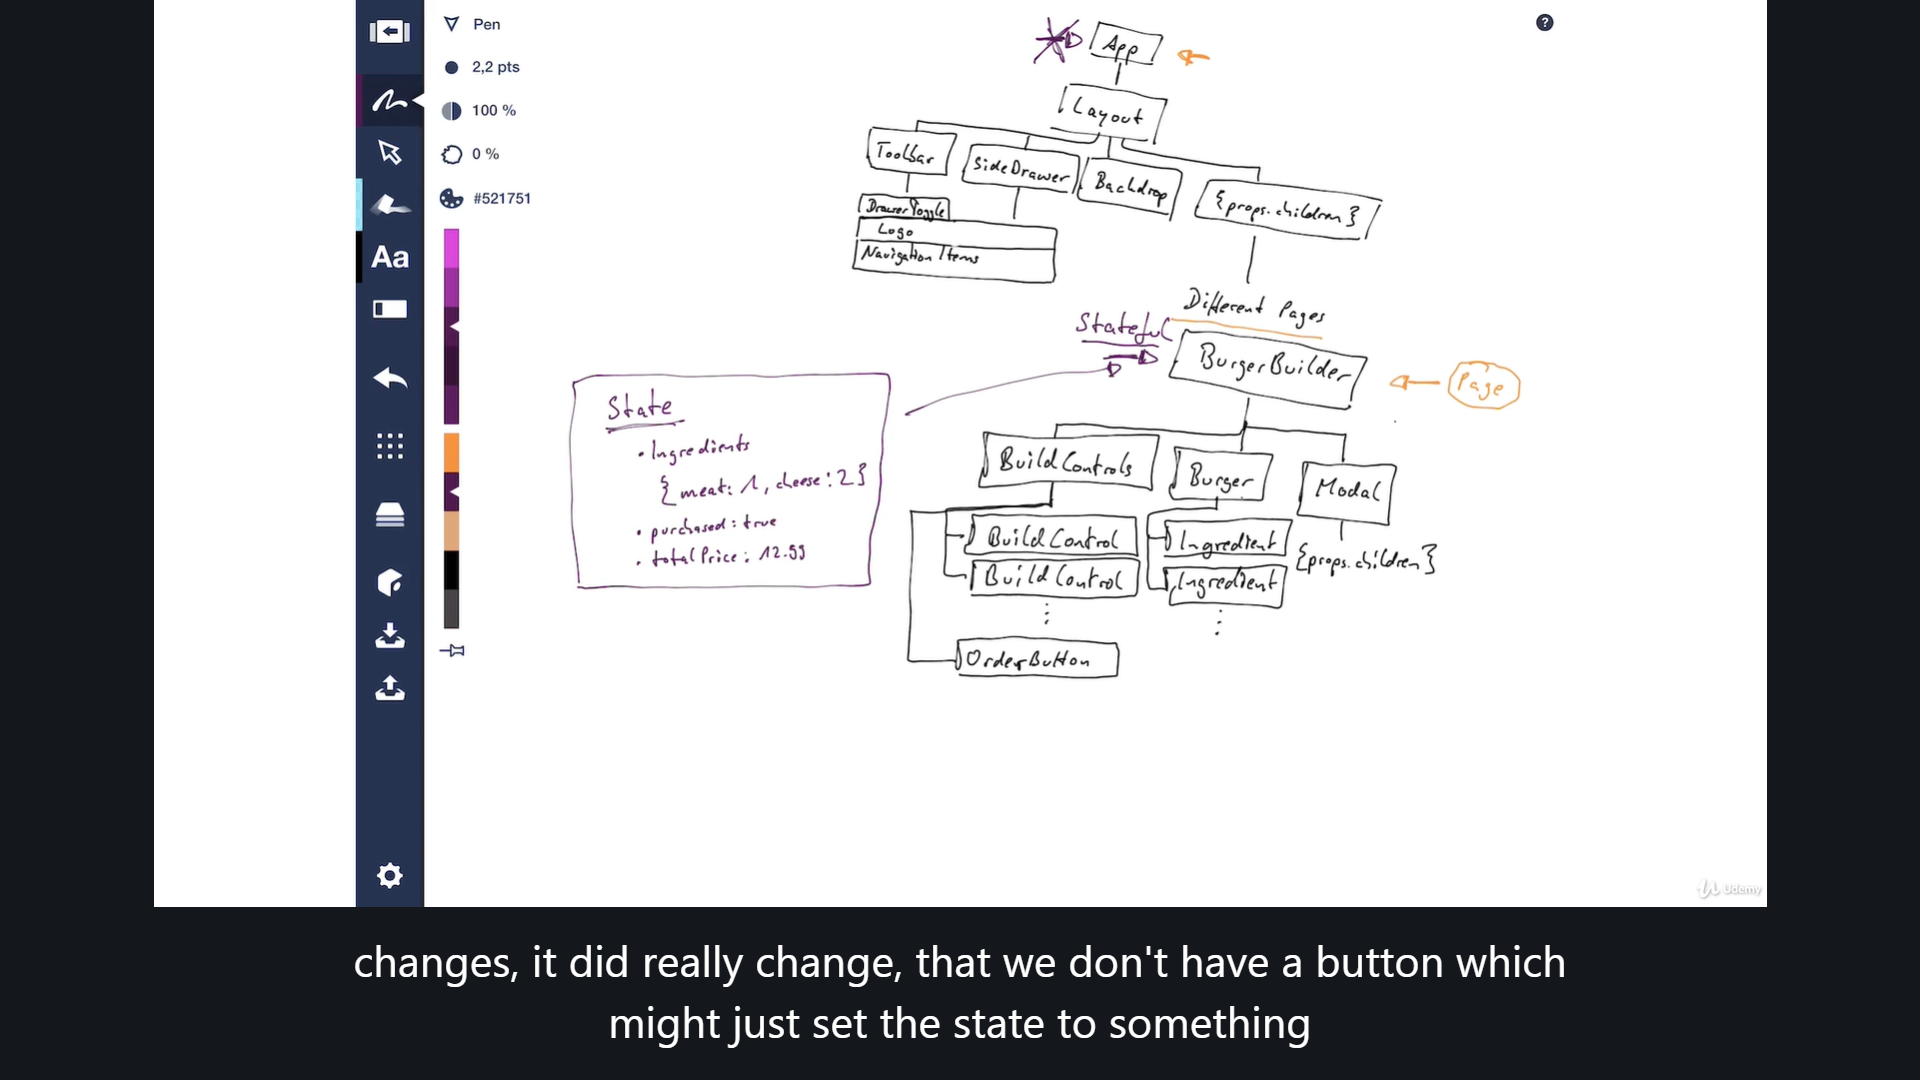 Pen
2,2 pts
100 %
0 %
#521751
Aa
?
App
Layout
Toolbar
SideDrawer
Backdrop
{props.children}
DrawerToggle
Logo
Navigation Items
Different Pages
Stateful
BurgerBuilder
Page
State
• Ingredients
{meat: 1, cheese: 2}
• purchased: true
• totalPrice: 12.99
BuildControls
Burger
Modal
BuildControl
Ingredient
{props.children}
BuildControl
Ingredient
OrderButton
Udemy
changes, it did really change, that we don't have a button which
might just set the state to something